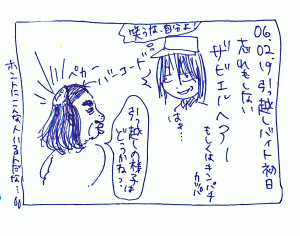 06.02.19 引っ越しバイト初日
忘れもしない
ザビエルヘアー
もしくはチンパチ
カッパ
笑うな、自分よ!
はぁ…
バーコード
ペカー
引っ越しの様子は
どうかねっ?
ホントにこんな人いるんだな…。